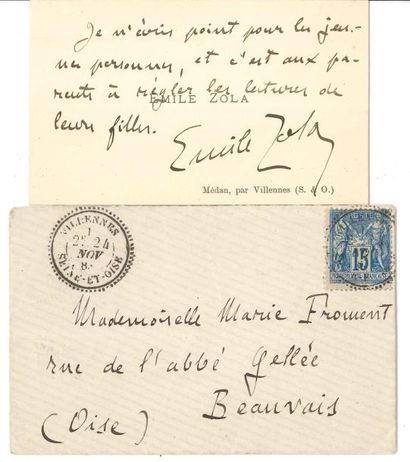 Je n'écris point pour les jeu-
nes personnes, et c'est aux pa-
rents à régler les lectures de
EMILE ZOLA
leurs filles.
Emile Zola
Médan, par Villennes (S. & O.)
VILLENNES
NOV
SEINE-ET-OISE
15
Mademoiselle Marie Froment
rue de l'abbé Gellée
Beauvais
(Oise)